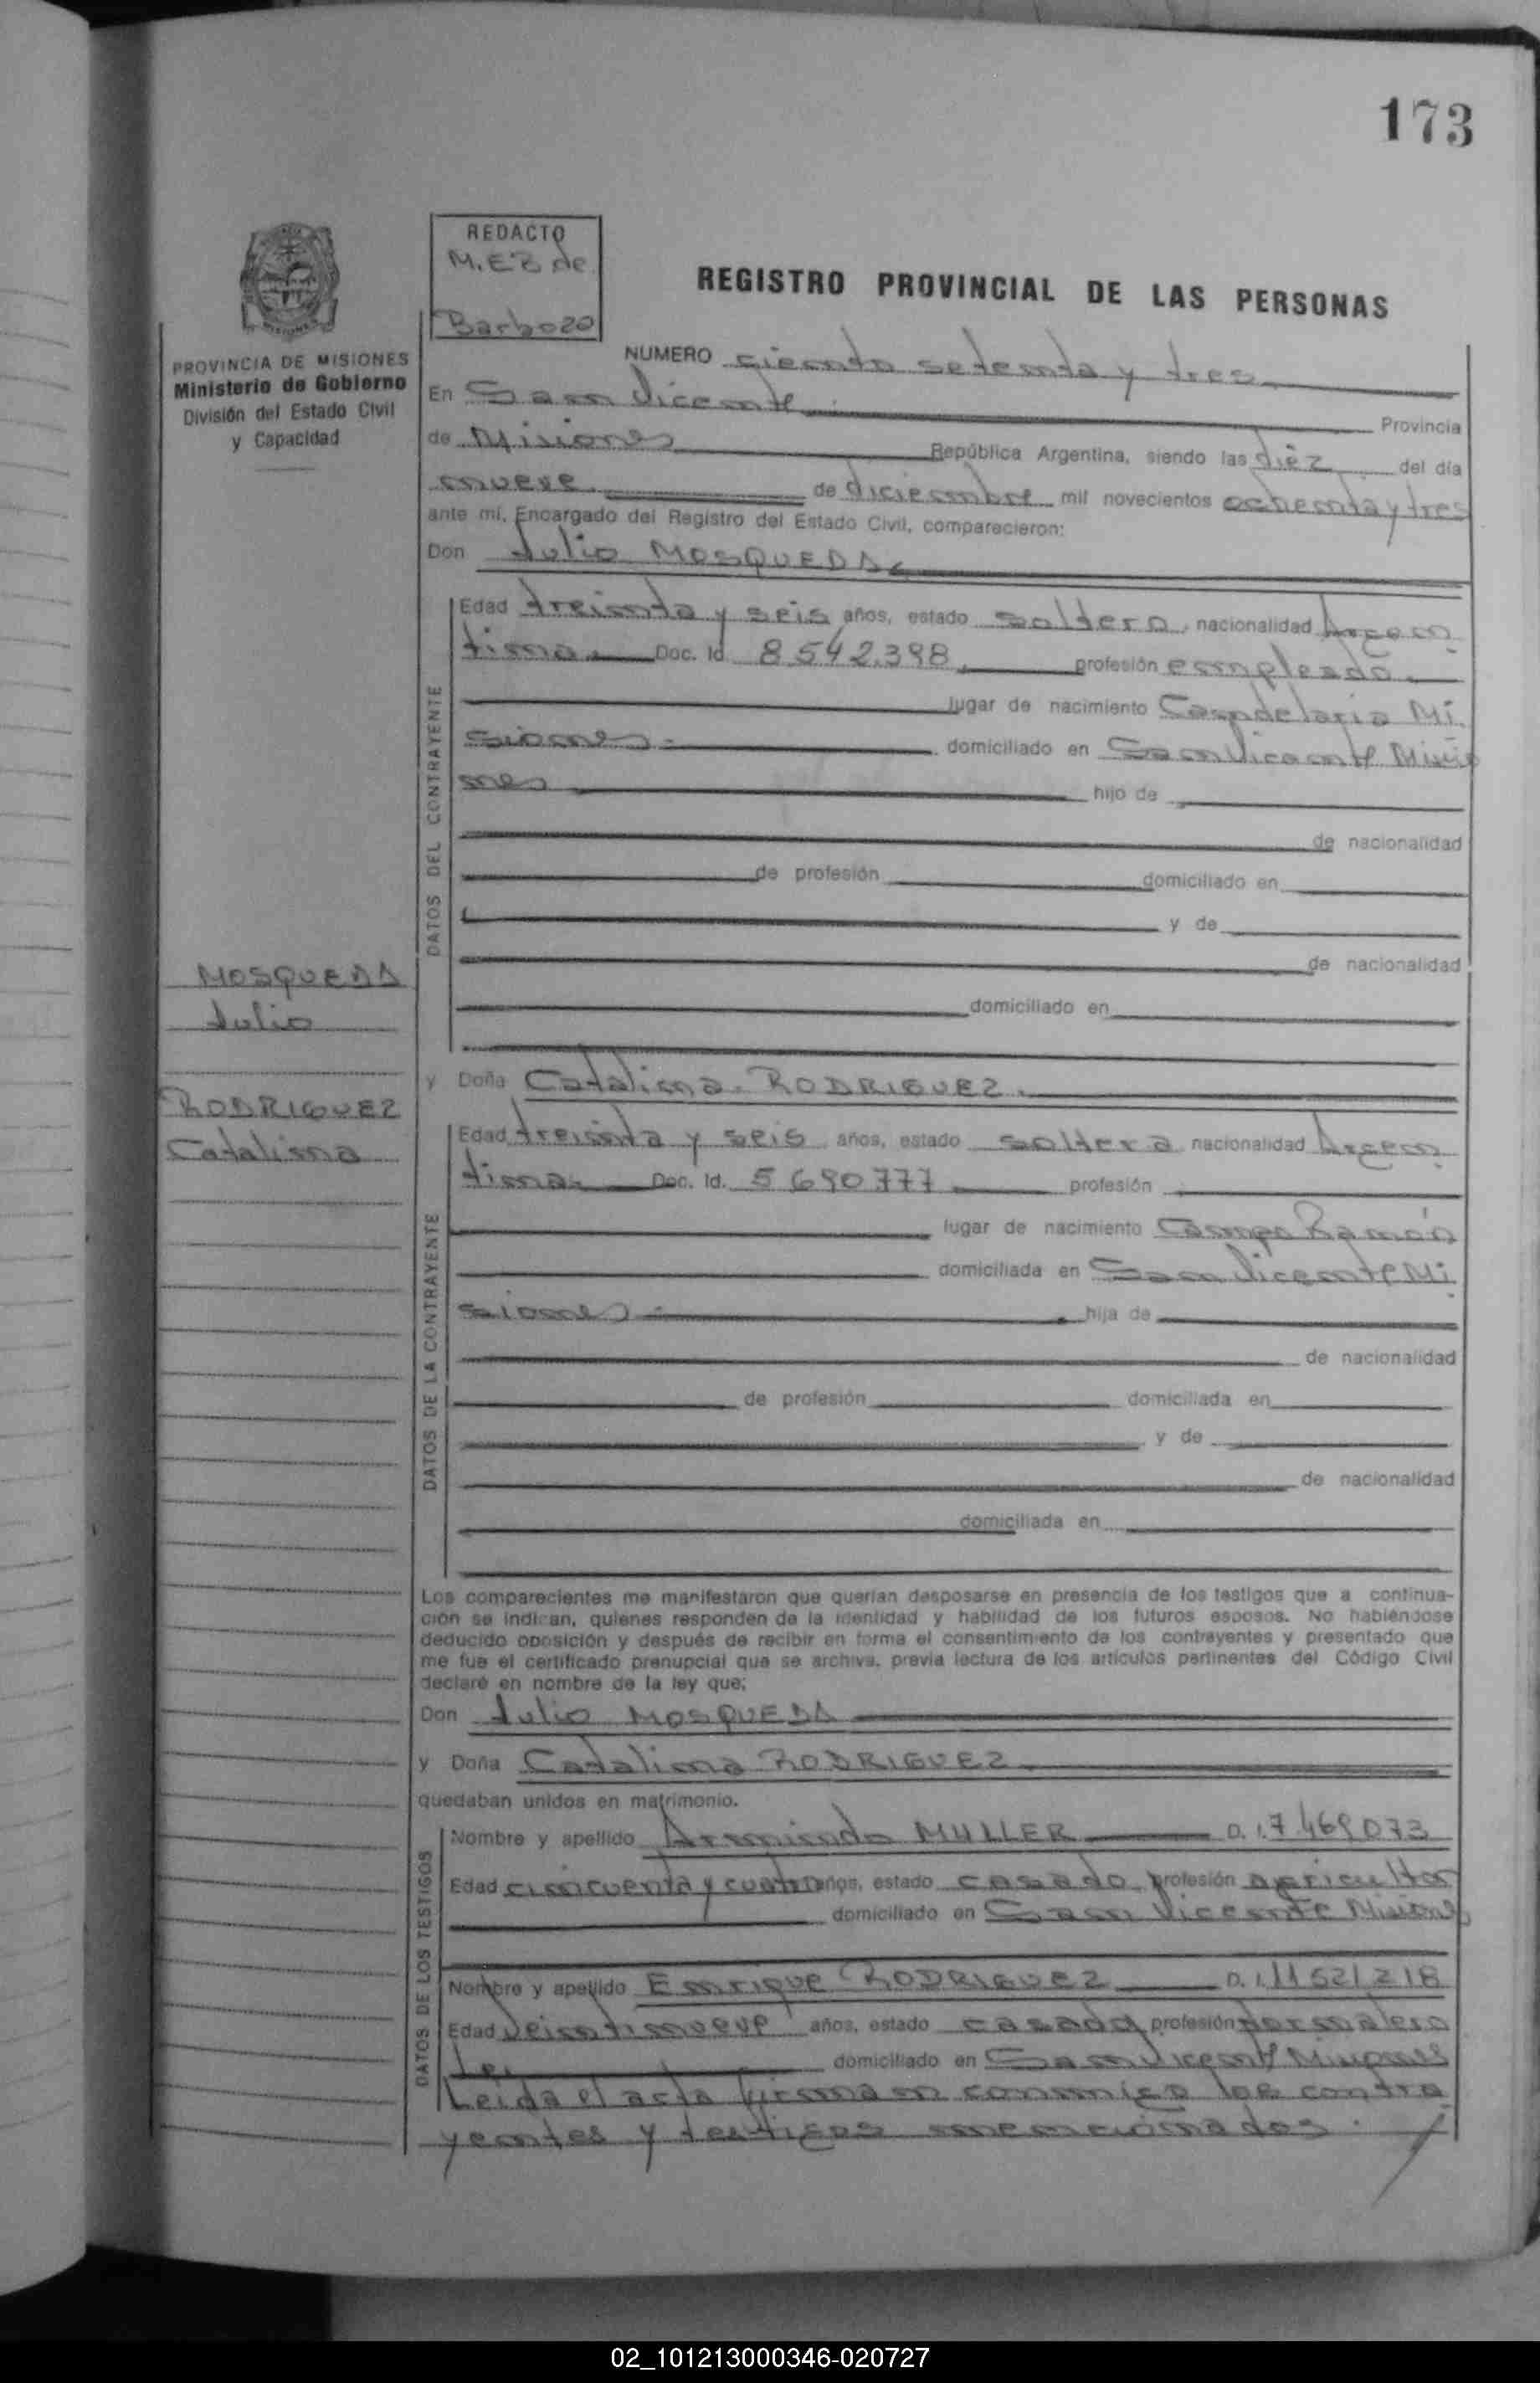 173
REDACTO
M.EB de
Barbozo
REGISTRO PROVINCIAL DE LAS PERSONAS
PROVINCIA DE MISIONES
Ministerio de Gobierno
División del Estado Civil
y Capacidad
NUMERO ciento setenta y tres
En San Vicente Provincia
de Misiones República Argentina, siendo las diéz del día
nueve de diciembre mil novecientos ochenta y tres
ante mí, Encargado del Registro del Estado Civil, comparecieron:
Don Julio MOSQUEDA
Edad treinta y seis años, estado soltero, nacionalidad Argen
tina. Doc. Id. 8542.398, profesión empleado.
lugar de nacimiento Candelaria Mi
siones domiciliado en San Vicente Misio
nes hijo de
de nacionalidad
de profesión domiciliado en
y de
de nacionalidad
domiciliado en
DATOS DEL CONTRAYENTE
MOSQUEDA
Julio
RODRIGUEZ
Catalina
y Doña Catalina RODRIGUEZ.
Edad treinta y seis años, estado soltera nacionalidad Argen
tina. Doc. Id. 5690777 profesión
lugar de nacimiento Campo Ramón
domiciliada en San Vicente Mi
siones hija de
de nacionalidad
de profesión domiciliada en
y de
de nacionalidad
domiciliada en
DATOS DE LA CONTRAYENTE
Los comparecientes me manifestaron que querían desposarse en presencia de los testigos que a continua-
ción se indican, quienes responden de la identidad y habilidad de los futuros esposos. No habiéndose
deducido oposición y después de recibir en forma el consentimiento de los contrayentes y presentado que
me fue el certificado prenupcial que se archiva, previa lectura de los artículos pertinentes del Código Civil
declaré en nombre de la ley que:
Don Julio MOSQUEDA
y Doña Catalina RODRIGUEZ.
quedaban unidos en matrimonio.
Nombre y apellido Armindo MULLER D.I. 7.469.073
Edad cincuenta y cuatro años, estado casado profesión agricultor
domiciliado en San Vicente Misiones
Nombre y apellido Enrique RODRIGUEZ D.I. 11521218
Edad veintinueve años, estado casado profesión jornalero
domiciliado en San Vicente Misiones
DATOS DE LOS TESTIGOS
Leida el acta firman conmigo los contra
yentes y testigos mencionados.
02_101213000346-020727